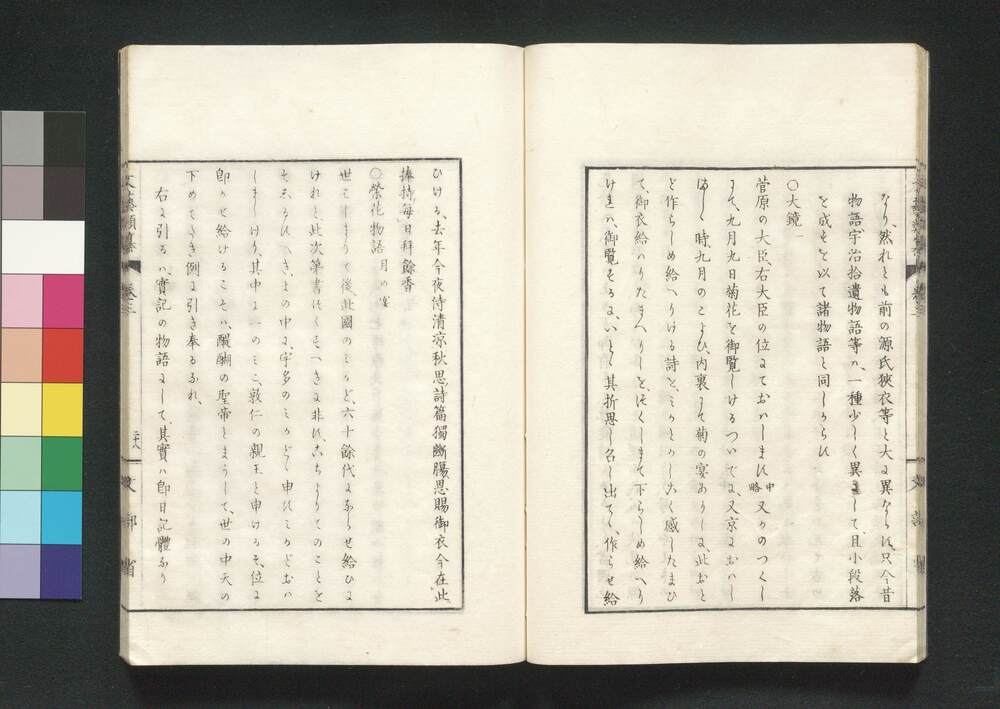 なり然れとも前の源氏狹衣等と大に異ならす、只今昔
物語宇治拾遺物語等ハ、一種少しく異にして、且小段落
を成すを以て諸物語と同しからす
〇大鏡一
菅原の大臣、右大臣の位にておハします 中略 又かのつくし
にて、九月九日菊花を御覧しけるついてに、又京におハし
ましゝ時、九月のこよひ、内裏にて菊の宴ありしに、此おと
ど作らしめ給へりける詩を、みかとかしこく感したまひ
て、御衣給ハりたまへりしを、つくしにもて下らしめ給へり
けれハ、御覧するに、いとゝ其折思し名し出てゝ、作らせ給
ひける、去年今夜侍清凉秋思詩篇獨斷膓恩賜御衣今在此
捧持毎日拜餘香
〇榮花物語 月の宴
世はしまりて後此國のみかど、六十餘代にならせ給ひに
けれと、此次第書つくすへきに非す、こちよりてのことを
そしるすへき、よの中に、宇多のみかどゝ申すみかどおハ
しましけり、其中に一のみこ、敦仁の親王と申けるそ、位に
即かせ給けるこそハ、醍醐の聖帝とまうして、世の中天の
下めてたき例に引き奉るなれ、
右に引るハ、實記の物語にして、其實ハ即日記體なり
文藝類纂 卷三
文部省